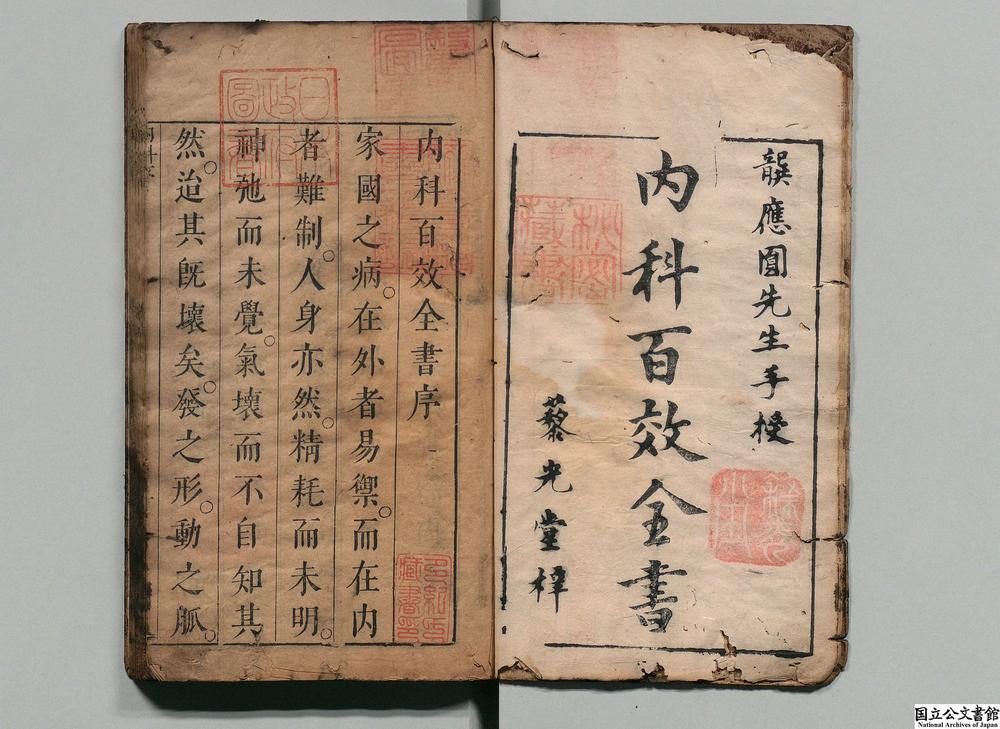 龔應圓先生手授
内科百效全書
藜光堂梓
内科百效全書序
家國之病。在外者易禦。而在内
者難制。人身亦然。精耗而未明。
神弛而未覺。氣壞而不自知其
然。迨其旣壞矣。發之形。動之脈。
日本政府圖書
国立公文書館
National Archives of Japan